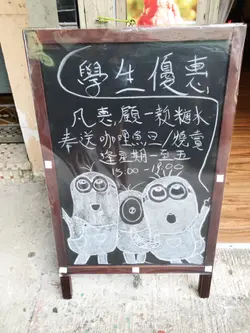 學生優惠
凡惠顧一款糖水
奉送咖哩魚旦/燒賣
逢星期一至五
15:00-18:00